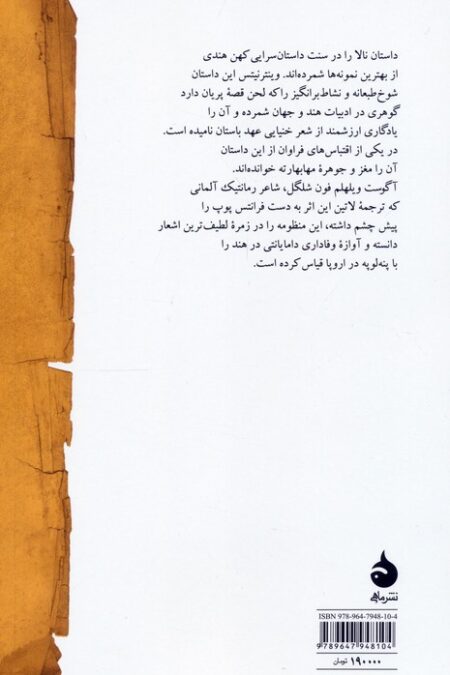 داستان نالا را در سنت داستان‌سرایی کهن هندی
از بهترین نمونه‌ها شمرده‌اند. وینترنیتس این داستان
شوخ‌طبعانه و نشاط‌برانگیز را که لحن قصهٔ پریان دارد
گوهری در ادبیات هند و جهان شمرده و آن را
یادگاری ارزشمند از شعر خنیایی عهد باستان نامیده است.
در یکی از اقتباس‌های فراوان از این داستان
آن را مغز و جوهرهٔ مهابهارته خوانده‌اند.
آگوست ویلهلم فون شلگل، شاعر رمانتیک آلمانی
که ترجمهٔ لاتین این اثر به دست فرانتس بوپ را
پیش چشم داشته، این منظومه را در زمرهٔ لطیف‌ترین اشعار
دانسته و آوازهٔ وفاداری دامایانتی در هند را
با پنه‌لوپه در اروپا قیاس کرده است.
نشر ماهی
ISBN 978-964-7948-10-4
9789647948104
۱۹۰۰۰۰ تومان